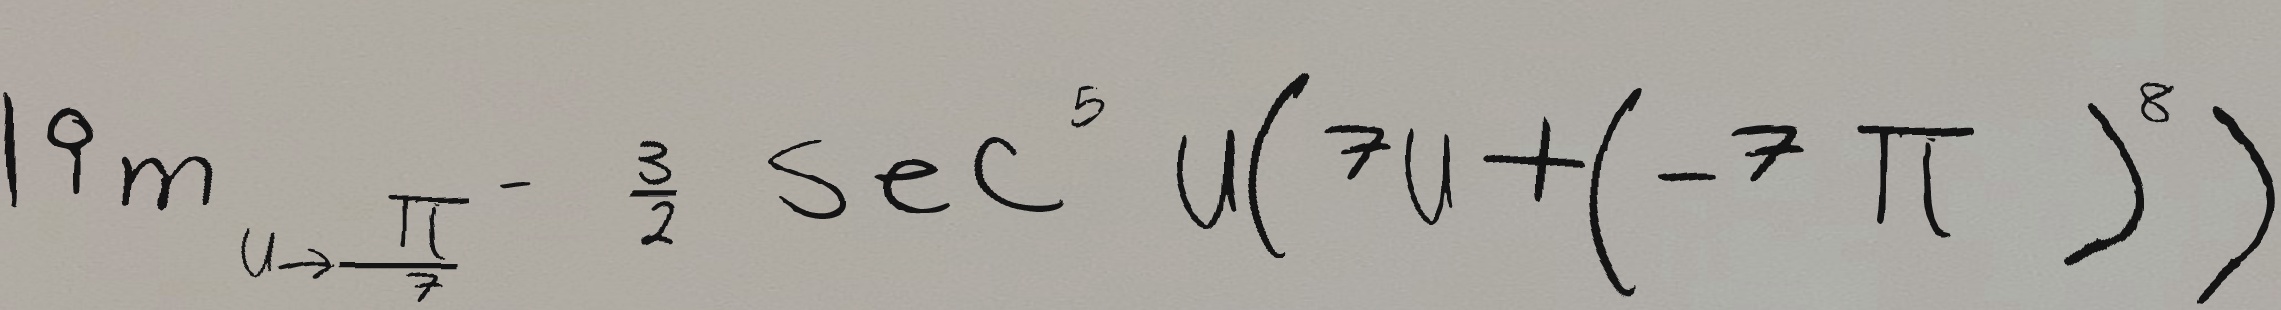 \lim_{u \to \frac{\pi}{7}^-} \frac{3}{2} \sec^5 u(7u+(-7\pi)^8)